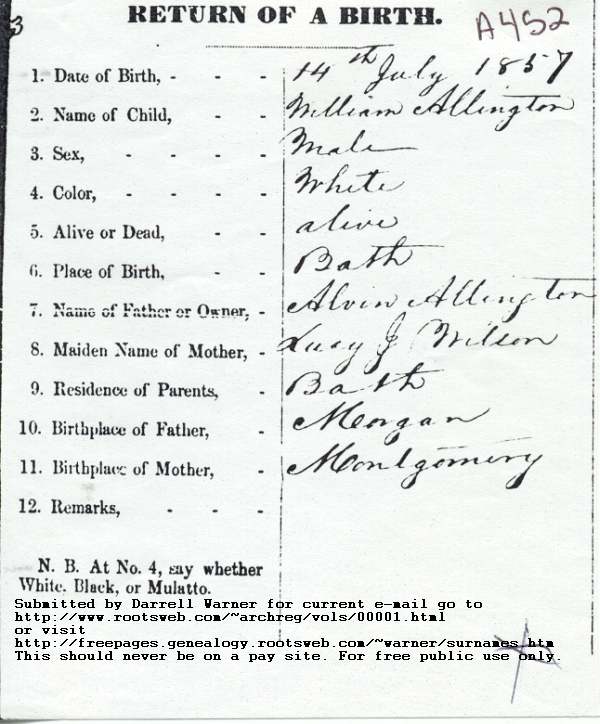 3
RETURN OF A BIRTH. A452
1. Date of Birth, - - - 14th July 1857
2. Name of Child, - - William Allington
3. Sex, - - - - Male
4. Color, - - - - White
5. Alive or Dead, - - alive
6. Place of Birth, - - Bath
7. Name of Father or Owner, - Alvin Allington
8. Maiden Name of Mother, - Lucy J Wilson
9. Residence of Parents, - Bath
10. Birthplace of Father, - Morgan
11. Birthplace of Mother, - Montgomery
12. Remarks, - - -
N. B. At No. 4, say whether
White, Black, or Mulatto.
Submitted by Darrell Warner for current e-mail go to
http://www.rootsweb.com/~archreg/vols/00001.html
or visit
http://freepages.genealogy.rootsweb.com/~warner/surnames.htm
This should never be on a pay site. For free public use only.